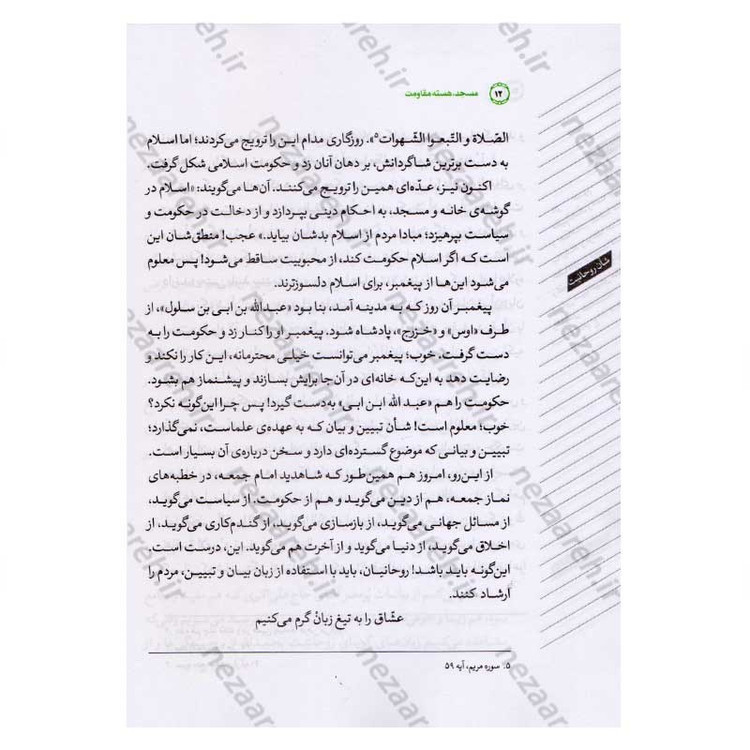 ۱۲ مسجد، هسته مقاومت
الصّلاة و اتّبعوا الشّهوات۵». روزگاری مدام این را ترویج می‌کردند؛ اما اسلام
به دست برترین شاگردانش، بر دهان آنان زد و حکومت اسلامی شکل گرفت.
اکنون نیز، عدّه‌ای همین را ترویج می‌کنند. آن‌ها می‌گویند: «اسلام در
گوشه‌ی خانه و مسجد، به احکام دینی بپردازد و از دخالت در حکومت و
سیاست بپرهیزد؛ مبادا مردم از اسلام بدشان بیاید.» عجب! منطق‌شان این
است که اگر اسلام حکومت کند، از محبوبیت ساقط می‌شود! پس معلوم
می‌شود این‌ها از پیغمبر، برای اسلام دلسوزترند.
شأن روحانیت
پیغمبر آن روز که به مدینه آمد، بنا بود «عبدالله بن ابی بن سلول»، از
طرف «اوس» و «خزرج»، پادشاه شود. پیغمبر او را کنار زد و حکومت را به
دست گرفت. خوب؛ پیغمبر می‌توانست خیلی محترمانه، این کار را نکند و
رضایت دهد به این‌که خانه‌ای در آن‌جا برایش بسازند و پیشنماز هم بشود.
حکومت را هم «عبد الله ابن ابی» به‌دست گیرد! پس چرا این‌گونه نکرد؟
خوب؛ معلوم است! شأن تبیین و بیان که به عهده‌ی علماست، نمی‌گذارد؛
تبیین و بیانی که موضوع گسترده‌ای دارد و سخن درباره‌ی آن بسیار است.
از این‌رو، امروز هم همین‌طور که شاهدید امام جمعه، در خطبه‌های
نماز جمعه، هم از دین می‌گوید و هم از حکومت. از سیاست می‌گوید،
از مسائل جهانی می‌گوید، از بازسازی می‌گوید، از گندم‌کاری می‌گوید، از
اخلاق می‌گوید، از دنیا می‌گوید و از آخرت هم می‌گوید. این، درست است.
این‌گونه باید باشد! روحانیان، باید با استفاده از زبان بیان و تبیین، مردم را
ارشاد کنند.
عشّاق را به تیغ زبانْ گرم می‌کنیم
۵. سوره مریم، آیه ۵۹
nezaareh.ir